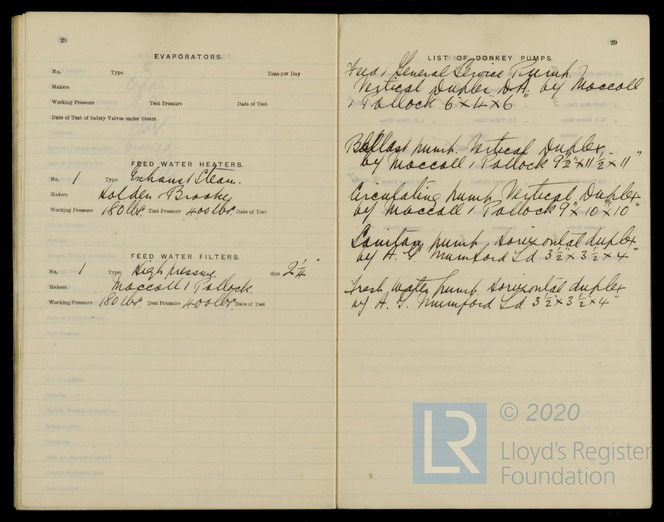 28
EVAPORATORS.
No. Type Tons per Day
Makers
Working Pressure Test Pressure Date of Test
Date of Test of Safety Valves under Steam
FEED WATER HEATERS.
No. 1 Type Exhaust Steam.
Makers Holden & Brooke
Working Pressure 180 lbs. Test Pressure 400 lbs. Date of Test
FEED WATER FILTERS.
No. 1 Type High pressure Size 2¼"
Makers Maccoll & Pollock.
Working Pressure 180 lbs Test Pressure 400 lbs. Date of Test
29
LIST OF DONKEY PUMPS.
Feed & General Service Pump.
Vertical Duplex D.A. by Maccoll
& Pollock 6 x 4 x 6"
Ballast pump. Vertical Duplex
by Maccoll & Pollock 9½" x 11½ x 11"
Circulating pump Vertical Duplex
by Maccoll & Pollock 9" x 10" x 10"
Sanitary pump, Horizontal duplex
by A. G. Mumford Ld 3½" x 3½" x 4"
Fresh water pump Horizontal duplex
by A. G. Mumford Ld 3½ x 3½ x 4"
© 2020
LR Lloyd's Register
Foundation